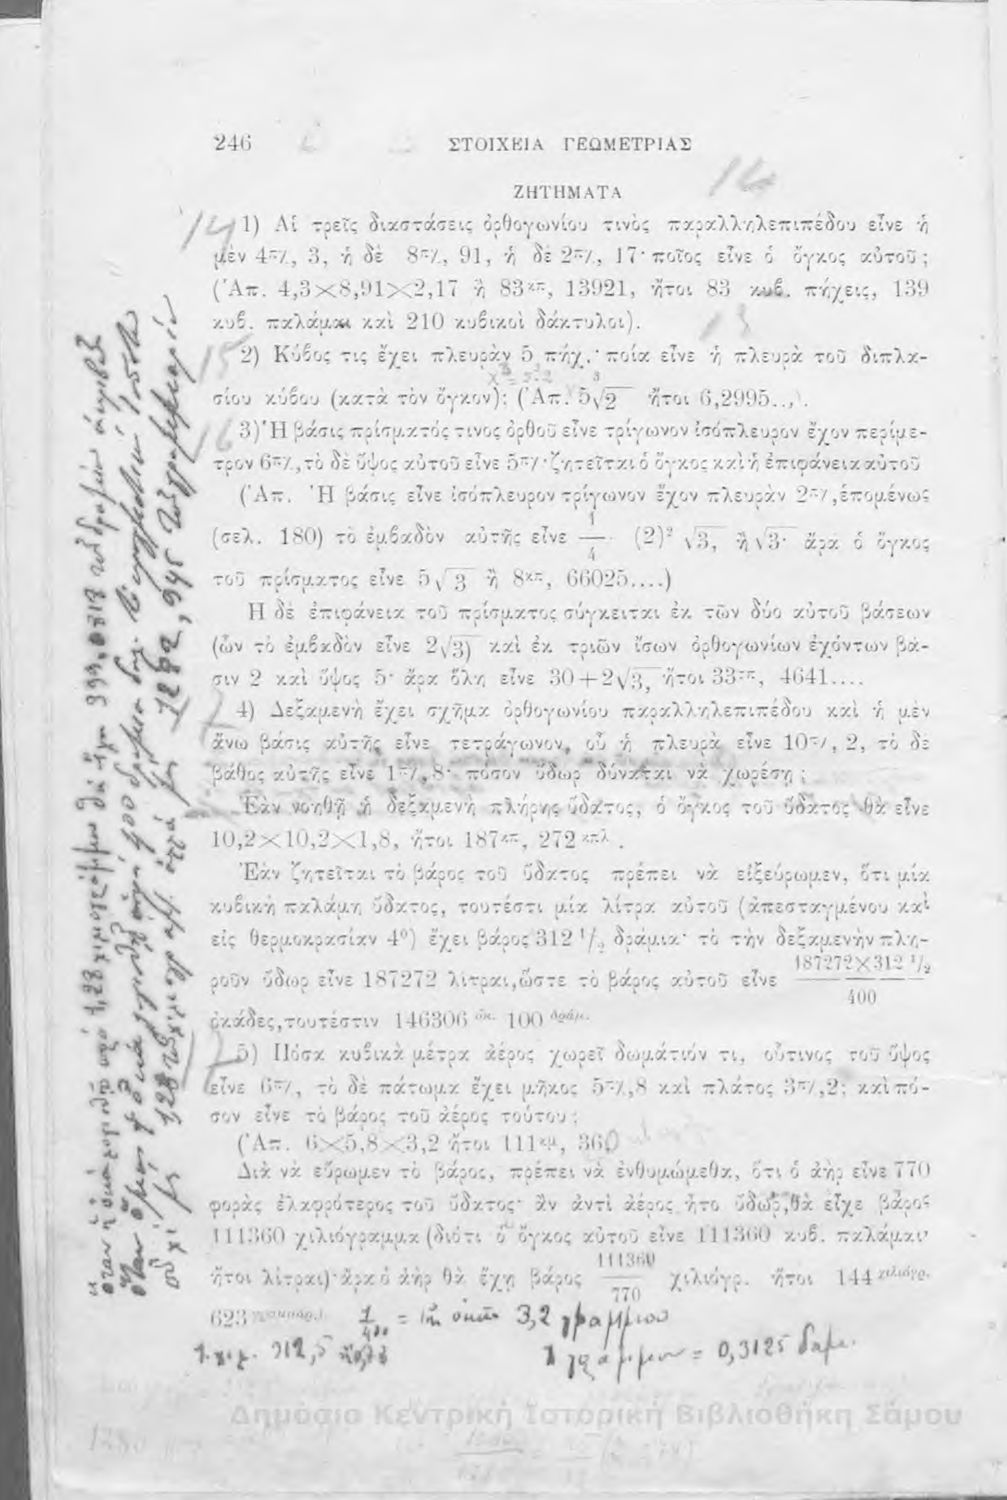 246
ΣΤΟΙΧΕΙΑ ΓΕΩΜΕΤΡΙΑΣ
ΖΗΤΗΜΑΤΑ
14
14
1) Αἱ τρεῖς διαστάσεις ὀρθογωνίου τινὸς παραλληλεπιπέδου εἶνε ἡ
μὲν 4π/, 3, ἡ δὲ 8π/, 91, ἡ δὲ 2π/, 17· ποῖος εἶνε ὁ ὄγκος αὐτοῦ;
(Ἀπ. 4,3×8,91×2,17 ἢ 83κπ, 13921, ἤτοι 83 κυβ. πήχεις, 139
κυβ. παλάμαι καὶ 210 κυβικοὶ δάκτυλοι).
15
2) Κύβος τις ἔχει πλευρὰν 5 πήχ.· ποία εἶνε ἡ πλευρὰ τοῦ διπλα-
σίου κύβου (κατὰ τὸν ὄγκον); (Ἀπ. 5∛2 ἤτοι 6,2995..,).
16
3) Ἡ βάσις πρίσματός τινος ὀρθοῦ εἶνε τρίγωνον ἰσόπλευρον ἔχον περίμε-
τρον 6π/, τὸ δὲ ὕψος αὐτοῦ εἶνε 5π/· ζητεῖται ὁ ὄγκος καὶ ἡ ἐπιφάνεια αὐτοῦ
(Ἀπ. Ἡ βάσις εἶνε ἰσόπλευρον τρίγωνον ἔχον πλευρὰν 2π/, ἑπομένως
(σελ. 180) τὸ ἐμβαδὸν αὐτῆς εἶνε 1/4 (2)² √3, ἢ √3· ἄρα ὁ ὄγκος
τοῦ πρίσματος εἶνε 5√3 ἢ 8κπ, 66025....)
Η δὲ ἐπιφάνεια τοῦ πρίσματος σύγκειται ἐκ τῶν δύο αὐτοῦ βάσεων
(ὧν τὸ ἐμβαδὸν εἶνε 2√3) καὶ ἐκ τριῶν ἴσων ὀρθογωνίων ἐχόντων βά-
σιν 2 καὶ ὕψος 5· ἄρα ὅλη εἶνε 30+2√3, ἤτοι 33τπ, 4641....
4) Δεξαμενὴ ἔχει σχῆμα ὀρθογωνίου παραλληλεπιπέδου καὶ ἡ μὲν
ἄνω βάσις αὐτῆς εἶνε τετράγωνον, οὗ ἡ πλευρὰ εἶνε 10π/, 2, τὸ δὲ
βάθος αὐτῆς εἶνε 1π/, 8· πόσον ὕδωρ δύναται νὰ χωρέσῃ;
Ἐὰν νοηθῇ ἡ δεξαμενὴ πλήρης ὕδατος, ὁ ὄγκος τοῦ ὕδατος θὰ εἶνε
10,2×10,2×1,8, ἤτοι 187κπ, 272κπλ .
Ἐὰν ζητεῖται τὸ βάρος τοῦ ὕδατος πρέπει νὰ εἰξεύρωμεν, ὅτι μία
κυβικὴ παλάμη ὕδατος, τουτέστι μία λίτρα αὐτοῦ (ἀπεσταγμένου καὶ
εἰς θερμοκρασίαν 4⁰) ἔχει βάρος 312 1/2 δράμια· τὸ τὴν δεξαμενὴν πλη-
ροῦν ὕδωρ εἶνε 187272 λίτραι, ὥστε τὸ βάρος αὐτοῦ εἶνε 187272×312 1/2 / 400
ὀκάδες, τουτέστιν 146306 ὀκ. 100 δράμ.
5) Πόσα κυβικὰ μέτρα ἀέρος χωρεῖ δωμάτιόν τι, οὗτινος τοῦ ὕψος
εἶνε 6π/, τὸ δὲ πάτωμα ἔχει μῆκος 5π/,8 καὶ πλάτος 3π/,2; καὶ πό-
σον εἶνε τὸ βάρος τοῦ ἀέρος τούτου;
(Ἀπ. 6×5,8×3,2 ἤτοι 111κμ, 360
Διὰ νὰ εὕρωμεν τὸ βάρος, πρέπει νὰ ἐνθυμώμεθα, ὅτι ὁ ἀὴρ εἶνε 770
φορὰς ἐλαφρότερος τοῦ ὕδατος· ἂν ἀντὶ ἀέρος ἦτο ὕδωρ, θὰ εἶχε βάρος
111360 χιλιόγραμμα (διότι ὁ ὄγκος αὐτοῦ εἶνε 111360 κυβ. παλάμαι
ἤτοι λίτραι)· ἄρα ὁ ἀὴρ θὰ ἔχῃ βάρος 111360/770 χιλιόγρ. ἤτοι 144 χιλιόγρ.
623
3,2 γραμμίου
312,5
1 γράμμιον = 0,3125 δραμ.
Δημόσια Κεντρική Ιστορική Βιβλιοθήκη Σάμου